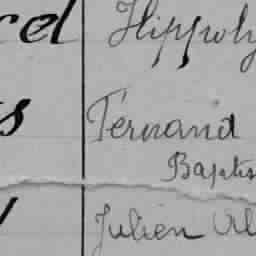 rel Hippoly
s Fernand
Baptis
Julien Al